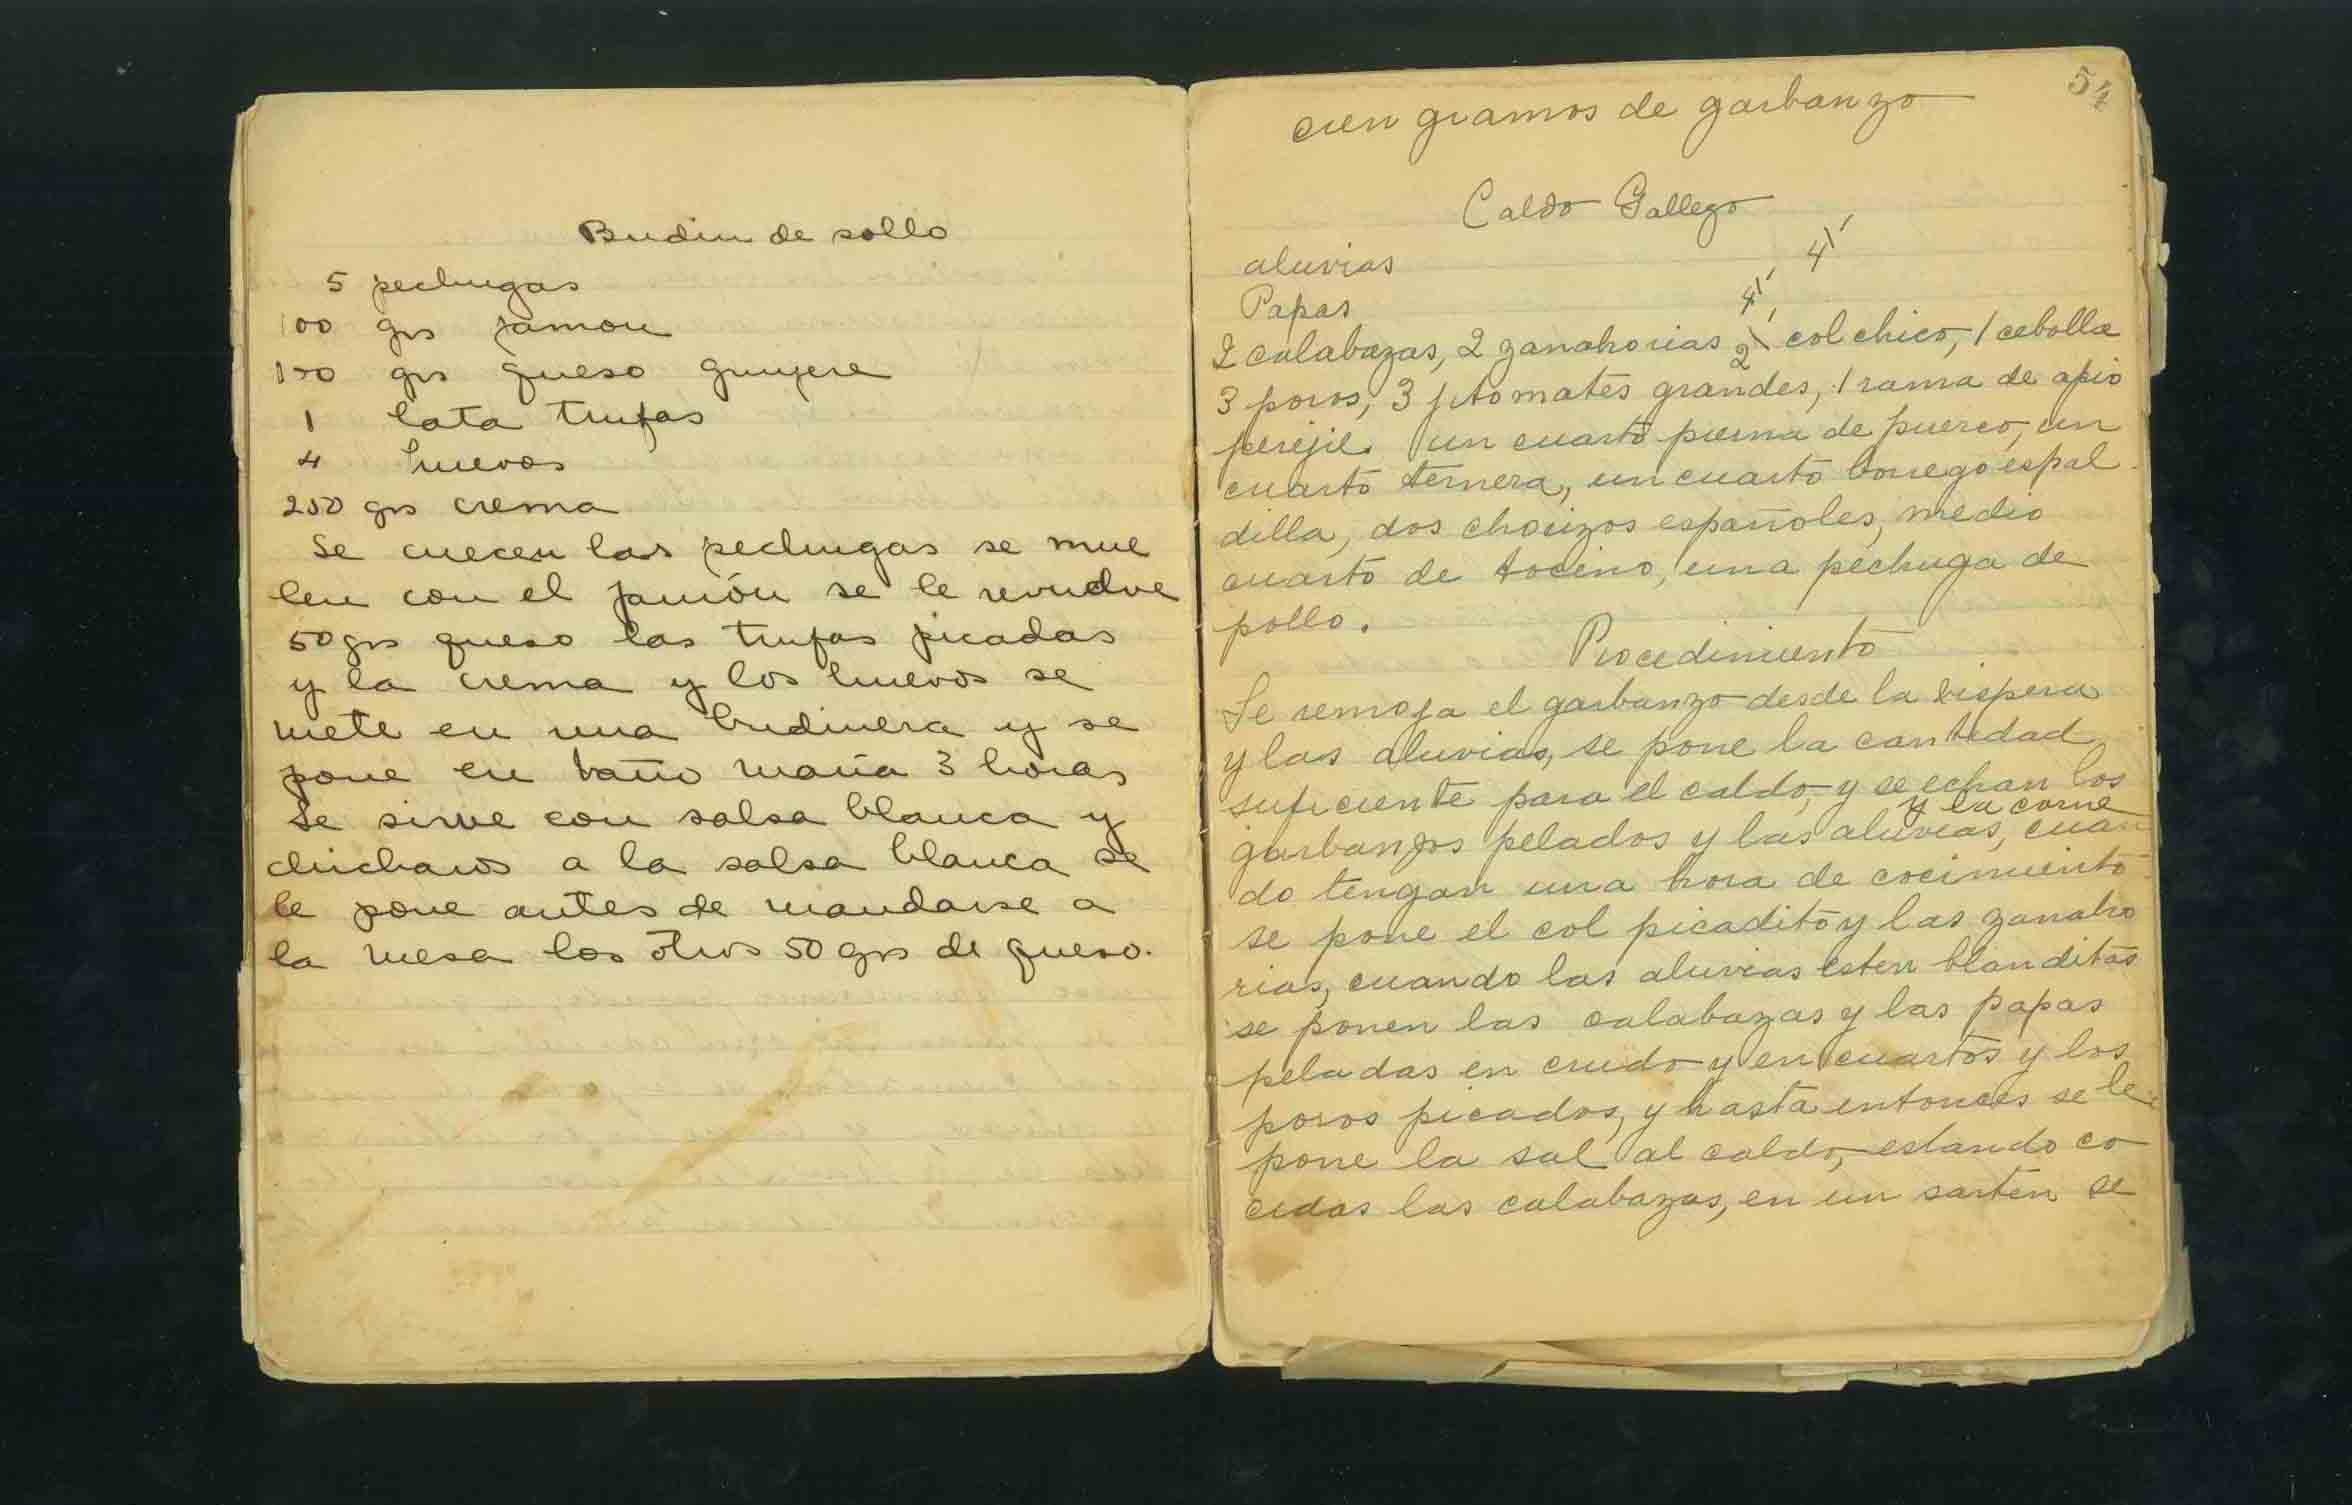 Budin de sollo
5 pechugas
100 grs jamon
100 grs queso gruyere
1 lata trufas
4 huevos
250 grs crema
Se cuecen las pechugas se mue
len con el jamón se le revuelve
50 grs queso las trufas picadas
y la crema y los huevos se
mete en una budinera y se
pone en baño maria 3 horas
Se sirve con salsa blanca y
chicharos a la salsa blanca se
le pone antes de mandarse a
la mesa los otros 50 grs de queso.
54
cien gramos de garbanzo
Caldo Gallego
aluvias
Papas
2 calabazas, 2 zanahorias 2 col chico, 1 cebolla
3 poros, 3 jitomates grandes, 1 rama de apio
perejil. un cuarto pierna de puerco, un
cuarto ternera, un cuarto borrego espal
dilla, dos chorizos españoles, medio
cuarto de tocino, una pechuga de
pollo.
Procedimiento
Se remoja el garbanzo desde la vispera
y las aluvias, se pone la cantidad
suficiente para el caldo, y se echan los
y la carne
garbanzos pelados y las aluvias, cuan
do tengan una hora de cocimiento
se pone el col picadito y las zanaho
rias, cuando las aluvias esten blanditas
se ponen las calabazas y las papas
peladas en crudo y en cuartos y los
poros picados, y hasta entonces se le
pone la sal al caldo, estando co
cidas las calabazas, en un sarten se